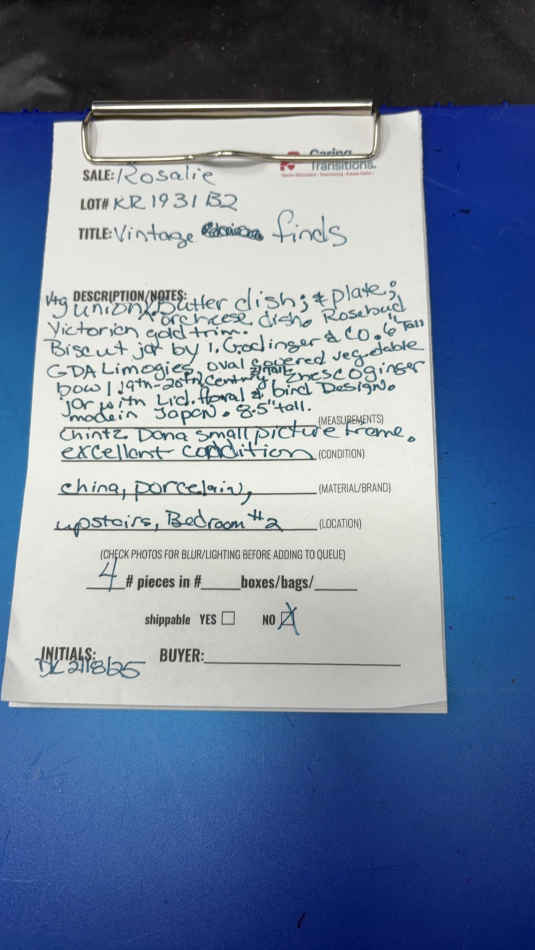 Caring
Transitions.
SALE: Rosalie
LOT# KR1931 B2
TITLE: Vintage finds
DESCRIPTION/NOTES:
Vtg Union K butter dish; & plate;
or cheese dish. Rosebud
Victorian gold trim.
Biscut jar by I. Godinger & Co. 6" Tall
GDA Limoges oval covered vegetable
bowl 19th-20th Century Enesco ginger
jar with Lid. floral & bird Design.
made in Japan. 8.5" tall.
(MEASUREMENTS)
Chintz Dona small picture frame.
excellant condition (CONDITION)
china, porcelain, (MATERIAL/BRAND)
upstairs, Bedroom #2 (LOCATION)
(CHECK PHOTOS FOR BLUR/LIGHTING BEFORE ADDING TO QUEUE)
4 # pieces in # boxes/bags/
shippable YES NO X
INITIALS: BUYER:
2/18/25